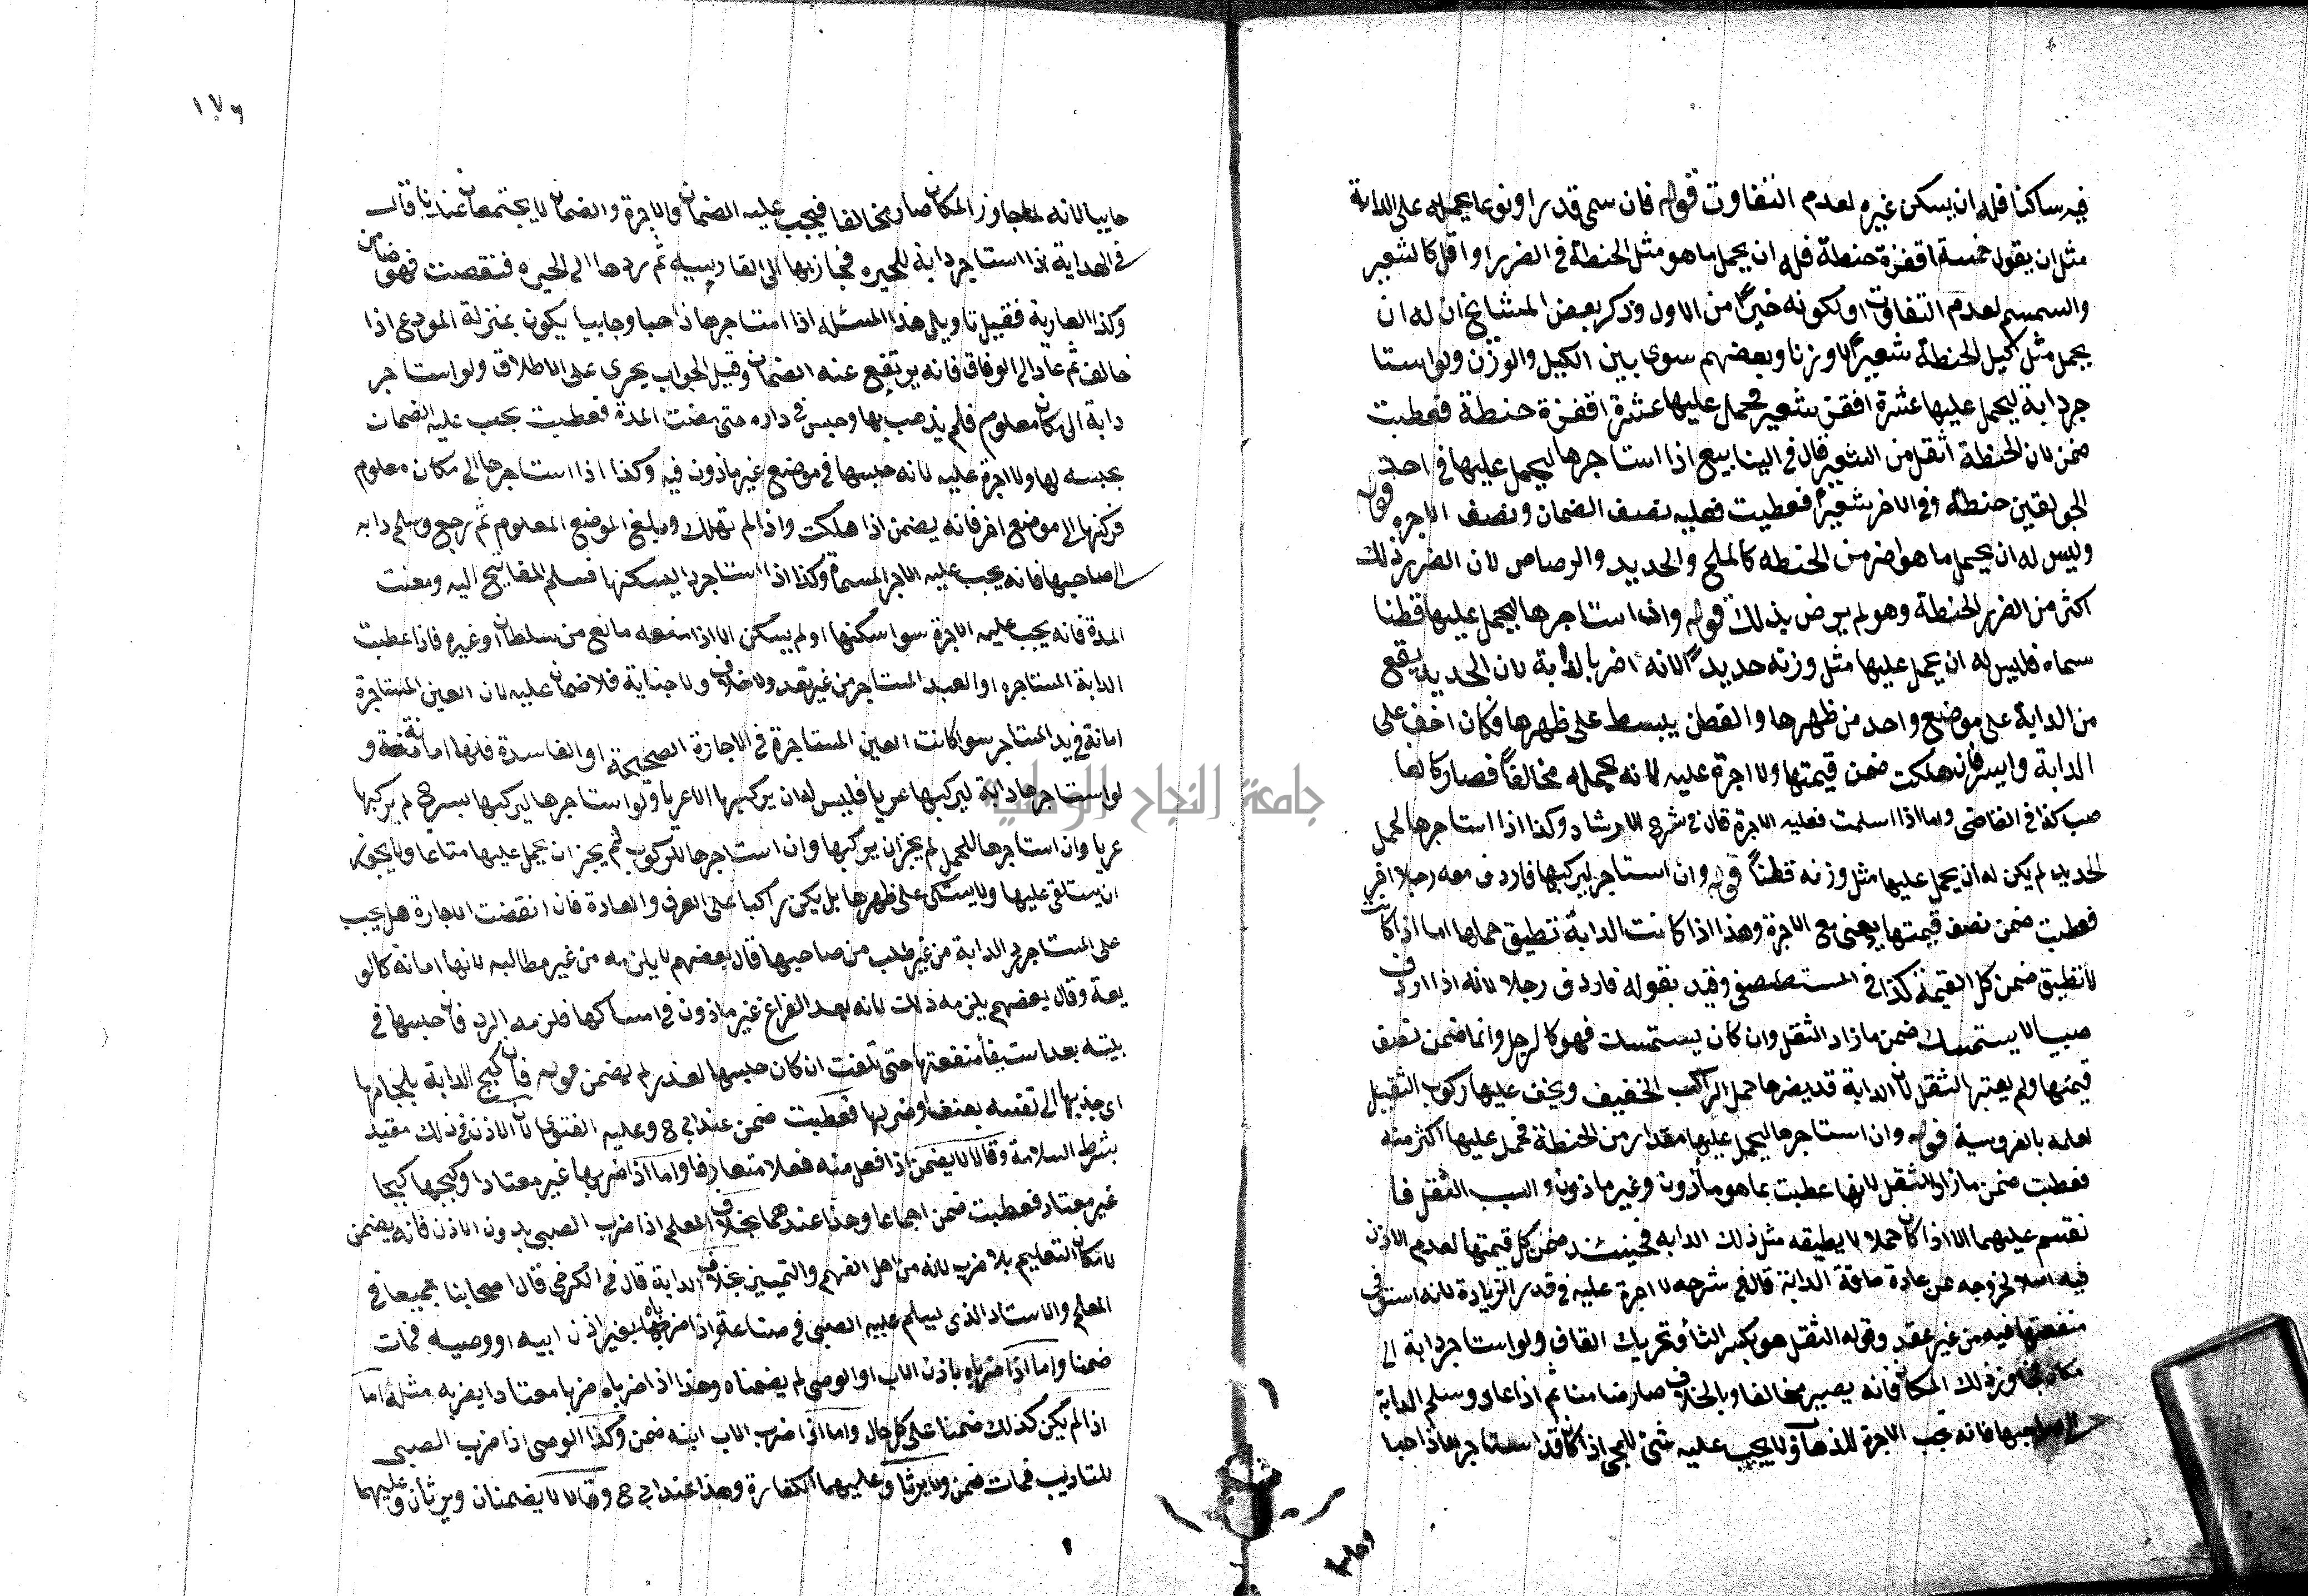 فيه ساكنا فله ان يسكن غيره لعدم التفاوت قوله فان سمى قدرا ونوعا يحمله على الدابة
مثل ان يقول خمسة اقفزة حنطة فله ان يحمل ما هو مثل الحنطة في الضرر او اقل كالشعير
والسمسم لعدم التفاوت او لكونه خيرًا من الاول وذكر بعض المشايخ ان له ان
يحمل مثل كيل الحنطة شعيرًا لا وزنا وبعضهم سوى بين الكيل والوزن ولو استا
جر دابة ليحمل عليها عشرة اقفزة شعير فحمل عليها عشرة اقفزة حنطة فعطبت
ضمن لان الحنطة اثقل من الشعير قال في الينابيع اذا استاجرها ليحمل عليها في احد
الجولقين حنطة وفي الاخر شعير فعطبت فعليه نصف الضمان ونصف الاجرة قوله
وليس له ان يحمل ما هو اضر من الحنطه كالملح والحديد والرصاص لان الضرر بذلك
اكثر من الضرر الحنطة وهو لم يرض بذلك قوله وان استاجرها ليحمل عليها قطنا
سماه فليس له ان يحمل عليها مثل وزنه حديدًا لانه اضر بالدابة لان الحديد يقع
من الدابة على موضع واحد من ظهرها والقطن يبسط على ظهرها فكان اخف على
الدابة وايسر فان هلكت ضمن قيمتها ولا اجرة عليه لانه بحمله مخالفًا فصار كالغا
صب كذا في القاضي واما اذا سلمت فعليه الاجرة قال في شرح الارشاد وكذا اذا استاجرها لحمل
الحديد لم يكن له ان يحمل عليها مثل وزنه قطنًا قوله وان استاجر ليركبها فاردف معه رجلا اخر
فعطبت ضمن نصف قيمتها يعني مع الاجرة وهذا اذا كانت الدابة تطيق حملها اما اذا كانت
لا تطيق ضمن كل القيمة كذا في المستصفى وقيد بقوله فاردف رجلا لانه اذا اردف
صبيا لا يستمسك ضمن ما زاد الثقل وان كان يستمسك فهو كالرجل وانما ضمن نصف
قيمتها ولم يعتبر الثقل لان الدابة قد يضرها حمل الراكب الخفيف ويخف عليها ركوب الثقيل
لعلمه بالفروسية قوله وان استاجرها ليحمل عليها مقدار من الحنطة فحمل عليها اكثر منه
فعطبت ضمن ما زاد الثقل لانها عطبت بما هو مأذون وغير ماذون والسبب الثقل فا
نقسم عليهما الا اذا كان حملا لا يطيقه مثل ذلك الدابه فحينئذ ضمن كل قيمتها لعدم الاذن
فيه اصلا لخروجه عن عادة طاقة الدابة قال في شرحه لا اجرة عليه في قدر الزيادة لانه استوفى
منفعتها فيه من غير عقد وقوله الثقل هو بكسر الثا وتحريك القاف ولو استاجر دابة الى
مكان فجاوز ذلك المكان فانه يصير مخالفا وبالخلاف صار ضامنا ثم اذا عاد وسلم الدابة
الى صاحبها فانه تجب الاجرة للذهاب ولا يجب عليه شئ للمجي اذا كان قد استاجرها ذاهبا
١٧٦
جايبا لانه لما جاوز المكان صار مخالفا فيجب عليه الضمان والاجرة والضمان لا يجتمعان عندنا قال
في الهداية اذا استاجر دابة للحيره فجاز بها الى القادسيه ثم ردها الى الحيره فنقصت فهو ضامن
وكذا العارية فقيل تاويل هذا المسئله اذا استاجرها ذاهبا وجاييا يكون بمنزلة المودع اذا
خالف ثم عاد الى الوفاق فانه يرتفع عنه الضمان وقيل الجواب يجرى على الاطلاق ولو استاجر
دابة الى مكان معلوم فلم يذهب بها وحبس في داره حتى مضت المدة فعطبت يجب عليه الضمان
بحبسه لها ولا اجرة عليه لانه حبسها في موضع غير ماذون فيه وكذا اذا استاجرها الى مكان معلوم
فركبها الى موضع اخر فانه يضمن اذا هلكت واذا لم تهلك وبلغ الموضع المعلوم ثم رجع وسلم دابه
الى صاحبها فانه يجب عليه الاجر المسماة وكذا اذا استاجر دارا ليسكنها فسلم المفاتيح اليه ومضت
المدة فانه يجب عليه الاجرة سوا سكنها او لم يسكن الا اذا منعه مانع من سلطان او غيره فاذا عطبت
الدابة المستاجره او العبد المستاجر من غير تعد ولا خلاف ولا جناية فلا ضمان عليه لان العين المستاجرة
امانة في يد المستاجر سوا كانت العين المستاجرة في الاجارة الصحيحة او الفاسدة فانها امانة و
لو استاجرها دابة ليركبها عريا فليس له ان يركبها الا عريا ولو استاجرها ليركبها بسرج لم يركبها
عريا وان استاجرها للحمل لم يجز ان يركبها وان استاجرها للركوب لم يجز ان يحمل عليها متاعا ولا يجوز
ان يستلقي عليها ولا يتكئ على ظهرها بل يكن راكبا على العرف والعادة فان انقضت الاجارة هل يجب
على المستاجر رد الدابة من غير طلب من صاحبها قال بعضهم لا يلزمه من غير مطالبه لانها امانه كالو
يعة وقال بعضهم يلزمه ذلك لانه بعد الفراغ غير ماذون في امساكها فلزمه الرد فان حبسها في
بيته بعد استيفأ منفعتها حتى تلفت ان كان حبسها لعذر لم يضمن قوله فان كبح الدابة بلجامها
اى جذبها الى نفسه بعنف او ضربها فعطبت ضمن عند ابي ح وعليه الفتوى لان الاذن في ذلك مقيد
بشرط السلامة وقالا لا يضمن اذا فعل منه فعلا متعارفا واما اذا ضربها غير معتادا وكبحها كبحا
غير معتاد فعطبت ضمن اجماعا وهذا عندهما بخلاف المعلم اذا ضرب الصبى بدون الاذن فانه يضمن
لامكان التعليم بلا ضرب لانه من اهل الفهم والتمييز بخلاف الدابة قال في الكرخي قال اصحابنا جميعا في
المعلم والاستاد الذى يسلم عليه الصبى في صناعة اذا ضرباه بغير اذن ابيه او وصيه فمات
ضمنا واما اذا ضرباه باذن الاب او الوصى لم يضمناه وهذا اذا ضرباه ضربا معتادا يضربه مثله اما
اذا لم يكن كذلك ضمنا على كل حال واما اذا ضرب الاب ابنه ضمن وكذا الوصى اذا ضرب الصبى
للتاديب فمات ضمن ولا يرثا وعليهما الكفارة وهذا عند ابي ح وقالا لا يضمنان ويرثان وعليهما
جامعة النجاح الوطنية